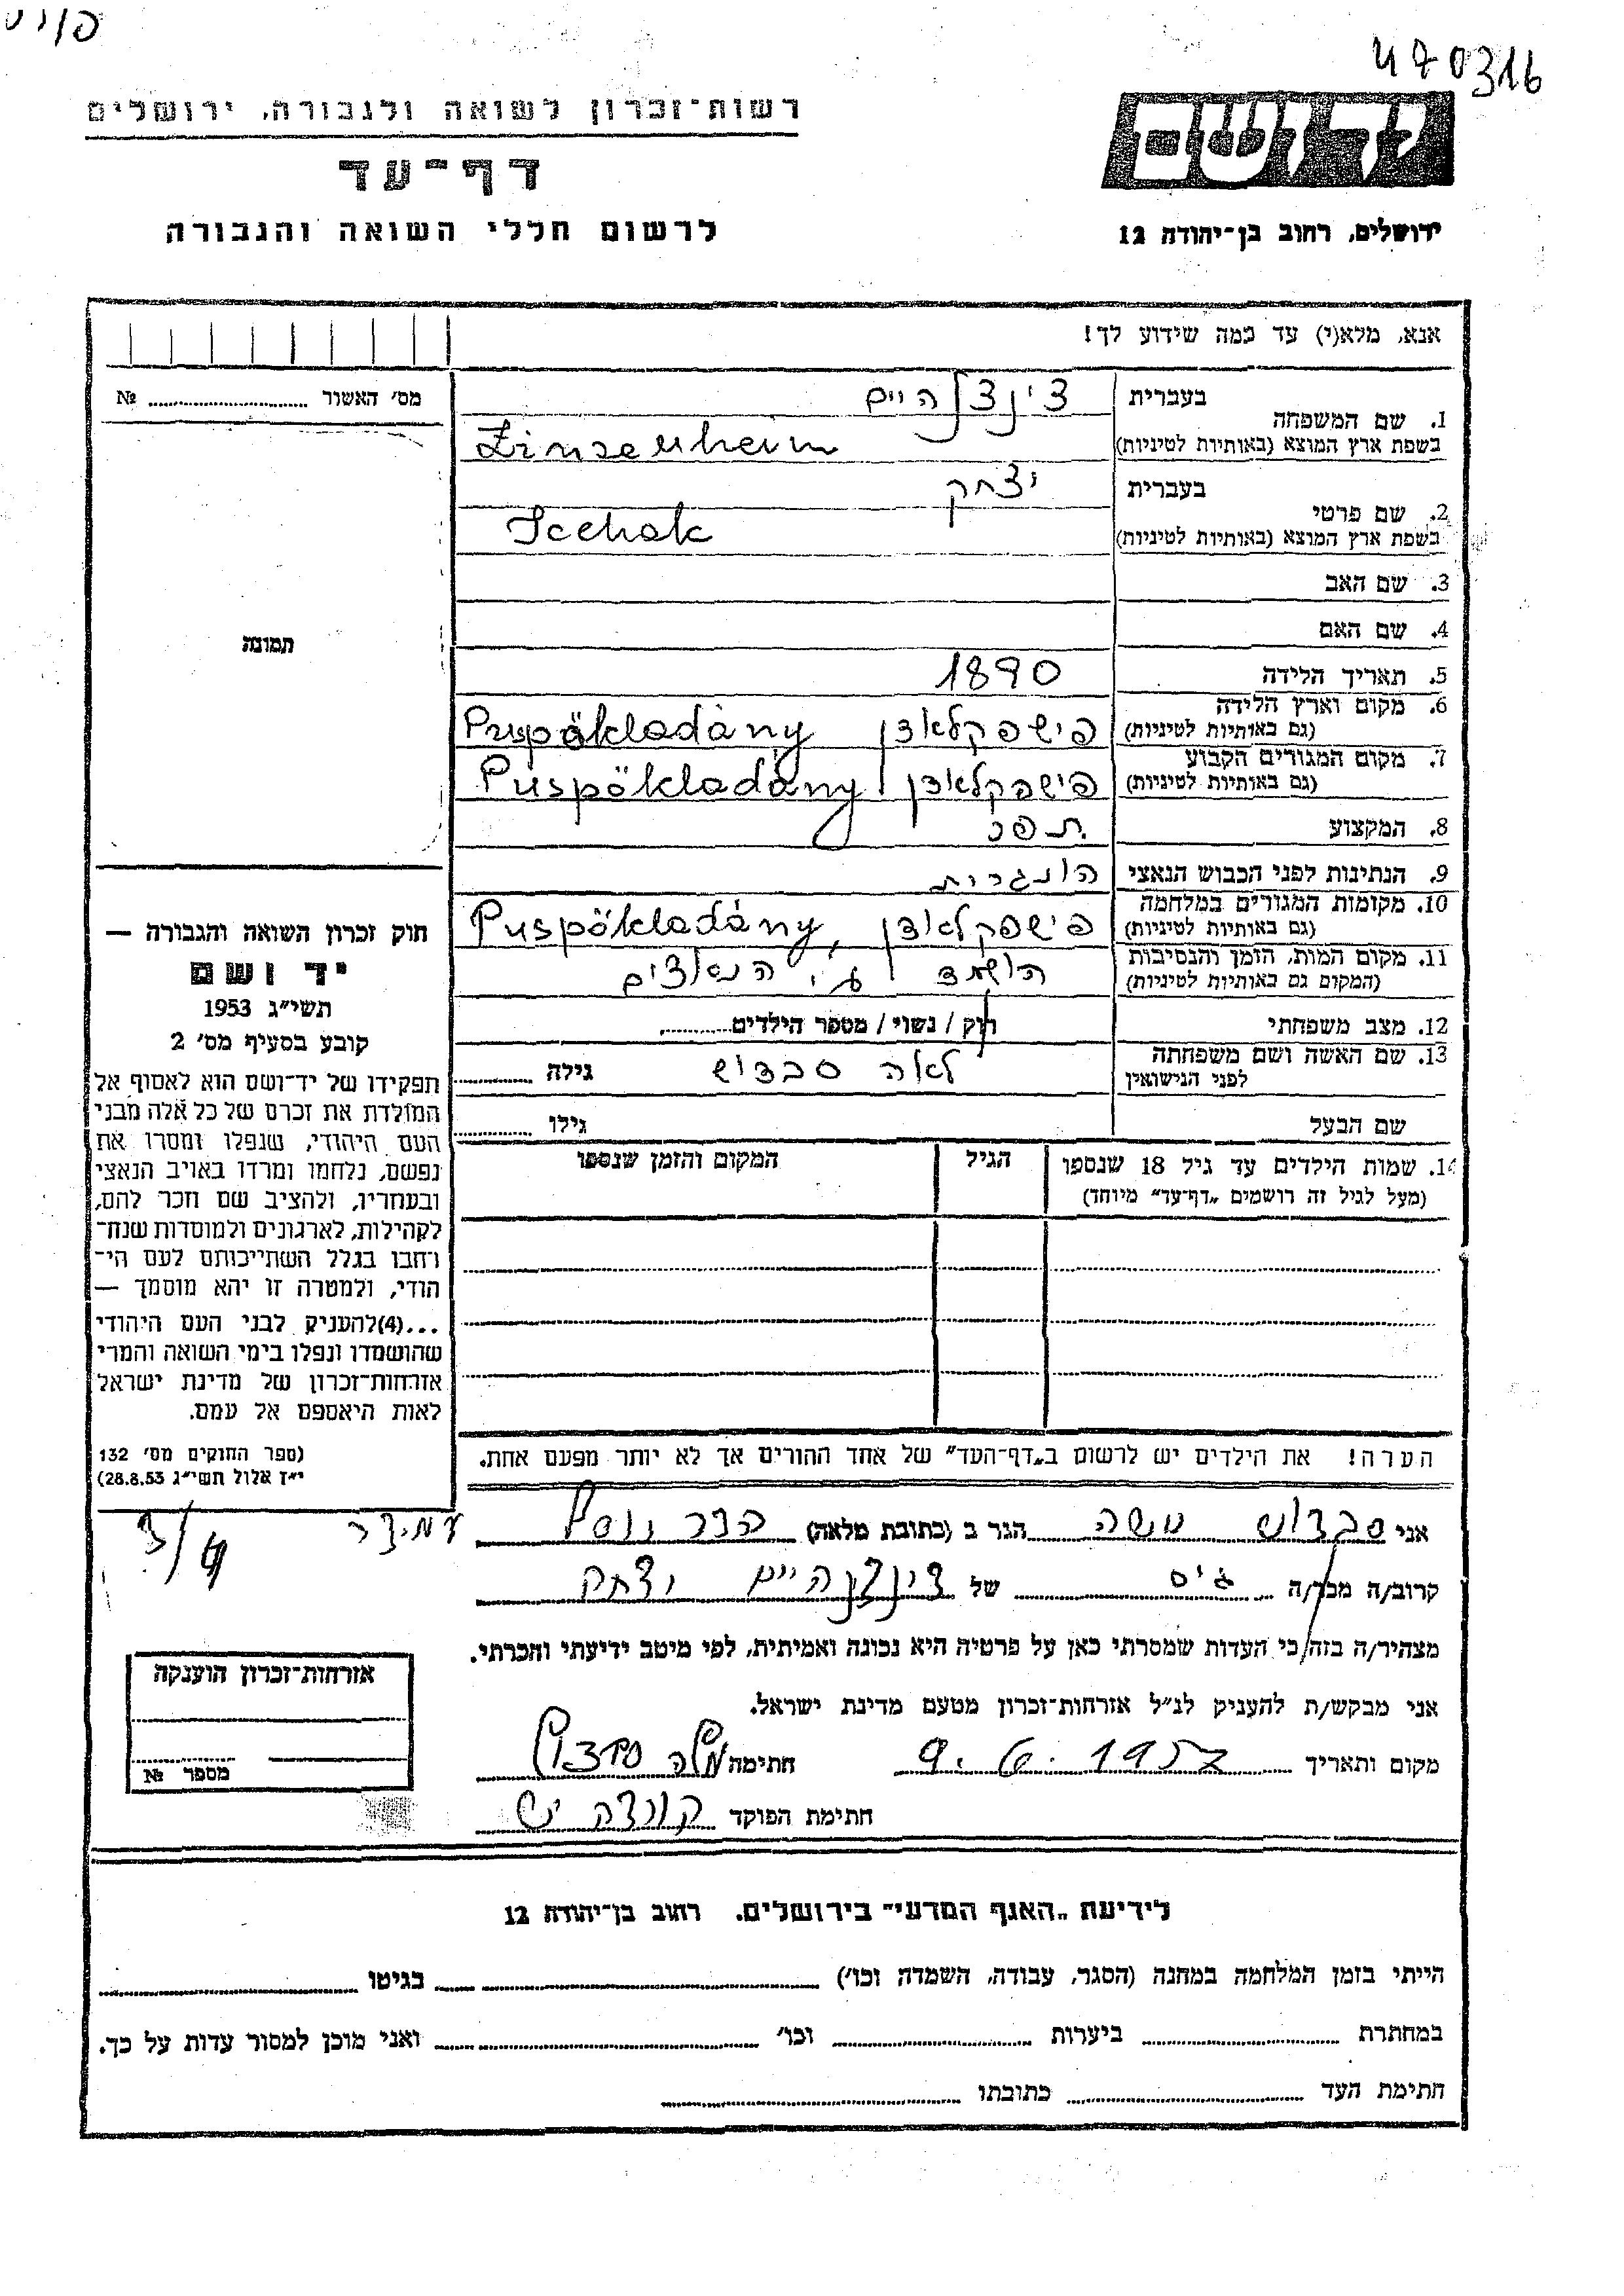 470316
רשות־זכרון לשואה ולגבורה, ירושלים
יד ושם
דף־עד
לרשום חללי השואה והגבורה
ירושלים, רחוב בן־יהודה 12
אנא, מלא(י) עד כמה שידוע לך!
מס׳ האשור № 
1. שם המשפחה בעברית צינצנהיים
בשפת ארץ המוצא (באותיות לטיניות) Zinzenheim
2. שם פרטי בעברית יצחק
בשפת ארץ המוצא (באותיות לטיניות) Icchak
3. שם האב
4. שם האם
תמונה
5. תאריך הלידה 1890
6. מקום וארץ הלידה (גם באותיות לטיניות) פישפקלאדן Puspökladány
7. מקום המגורים הקבוע (גם באותיות לטיניות) פישפקלאדן Puspökladány
8. המקצוע
9. הנתינות לפני הכבוש הנאצי הונגרית
10. מקומות המגורים במלחמה (גם באותיות לטיניות) פישפקלאדן, Puspökladány
11. מקום המות, הזמן והנסיבות (המקום גם באותיות לטיניות) הושמד ע״י הנאצים
12. מצב משפחתי רוק / נשוי / מספר הילדים
13. שם האשה ושם משפחתה לפני הנישואין לאה סבדוש גילה
שם הבעל גילו
14. שמות הילדים עד גיל 18 שנספו הגיל המקום והזמן שנספו
(מעל לגיל זה רושמים „דף־עד״ מיוחד)
הערה! את הילדים יש לרשום ב„דף־העד״ של אחד ההורים אך לא יותר מפעם אחת.
חוק זכרון השואה והגבורה —
יד ושם
תשי״ג 1953
קובע בסעיף מס׳ 2
תפקידו של יד־ושם הוא לאסוף אל
המולדת את זכרם של כל אלה מבני
העם היהודי, שנפלו ומסרו את
נפשם, נלחמו ומרדו באויב הנאצי
ובעוזריו, ולהציב שם וזכר להם,
לקהילות, לארגונים ולמוסדות שנח־
רחבו בגלל השתייכותם לעם הי־
הודי, ולמטרה זו יהא מוסמך —
...(4)להעניק לבני העם היהודי
שהושמדו ונפלו בימי השואה והמרי
אזרחות־זכרון של מדינת ישראל
לאות היאספם אל עמם.
(ספר החוקים מס׳ 132
י״ז אלול תשי״ג 28.8.53)
אני סבדוש משה הגר ב (כתובת מלאה) הדר יוסף עמידר
קרוב/ה מכר/ה גיס של צינצנהיים יצחק
מצהיר/ה בזה כי העדות שמסרתי כאן על פרטיה היא נכונה ואמיתית, לפי מיטב ידיעתי והכרתי.
אני מבקש/ת להעניק לנ״ל אזרחות־זכרון מטעם מדינת ישראל.
מקום ותאריך 9.6.1957 חתימה משה סבדוש
חתימת הפוקד
אזרחות־זכרון הוענקה
מספר №
לידיעת „האגף המדעי״ בירושלים. רחוב בן־יהודה 12
הייתי בזמן המלחמה במחנה (הסגר, עבודה, השמדה וכו׳) בגיטו
במחתרת ביערות וכו׳ ואני מוכן למסור עדות על כך.
חתימת העד כתובתו